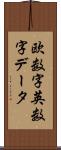 欧数字英数
字データ